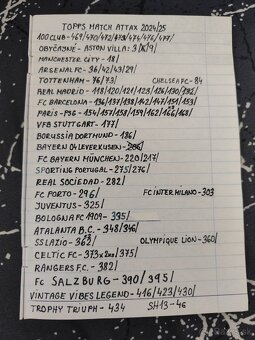 TOPPS MATCH ATTAX 2024/25
100 CLUB - 469/470/472/473/474/476/477/
OBYČAJNÉ - ASTON VILLA: 3/8/9/
MANCHESTER CITY - 18/
ARSENAL FC - 36/42/43/29/
TOTTENHAM - 76/73/ CHELSEA FC - 84
REAL MADRID - 118/120/121/123/126/130/132/
FC BARCELONA - 136/137/138/142/147/151/153
PARIS - PSG - 154/157/158/159/162/166/168/
VFB STUTTGART - 177/
BORUSSIA DORTMUND - 186/
BAYERN 04 LEVERKUSEN - 206/
FC BAYERN MÜNCHEN - 220/217/
SPORTING PORTUGAL - 275/276/
REAL SOCIEDAD - 282/
FC PORTO - 296/ FC INTER MILANO - 303
JUVENTUS - 325/
BOLOGNA FC 1909 - 335/
ATALANTA B.C. - 348/346/
SS LAZIO - 363/ OLYMPIQUE LION - 360/
CELTIC FC - 373 x 2ks/375/
RANGERS F.C. - 382/
FC SALZBURG - 390/395/
VINTAGE VIBES LEGEND - 416/423/430/
TROPHY TRIUPH - 434 SH13 - 4€